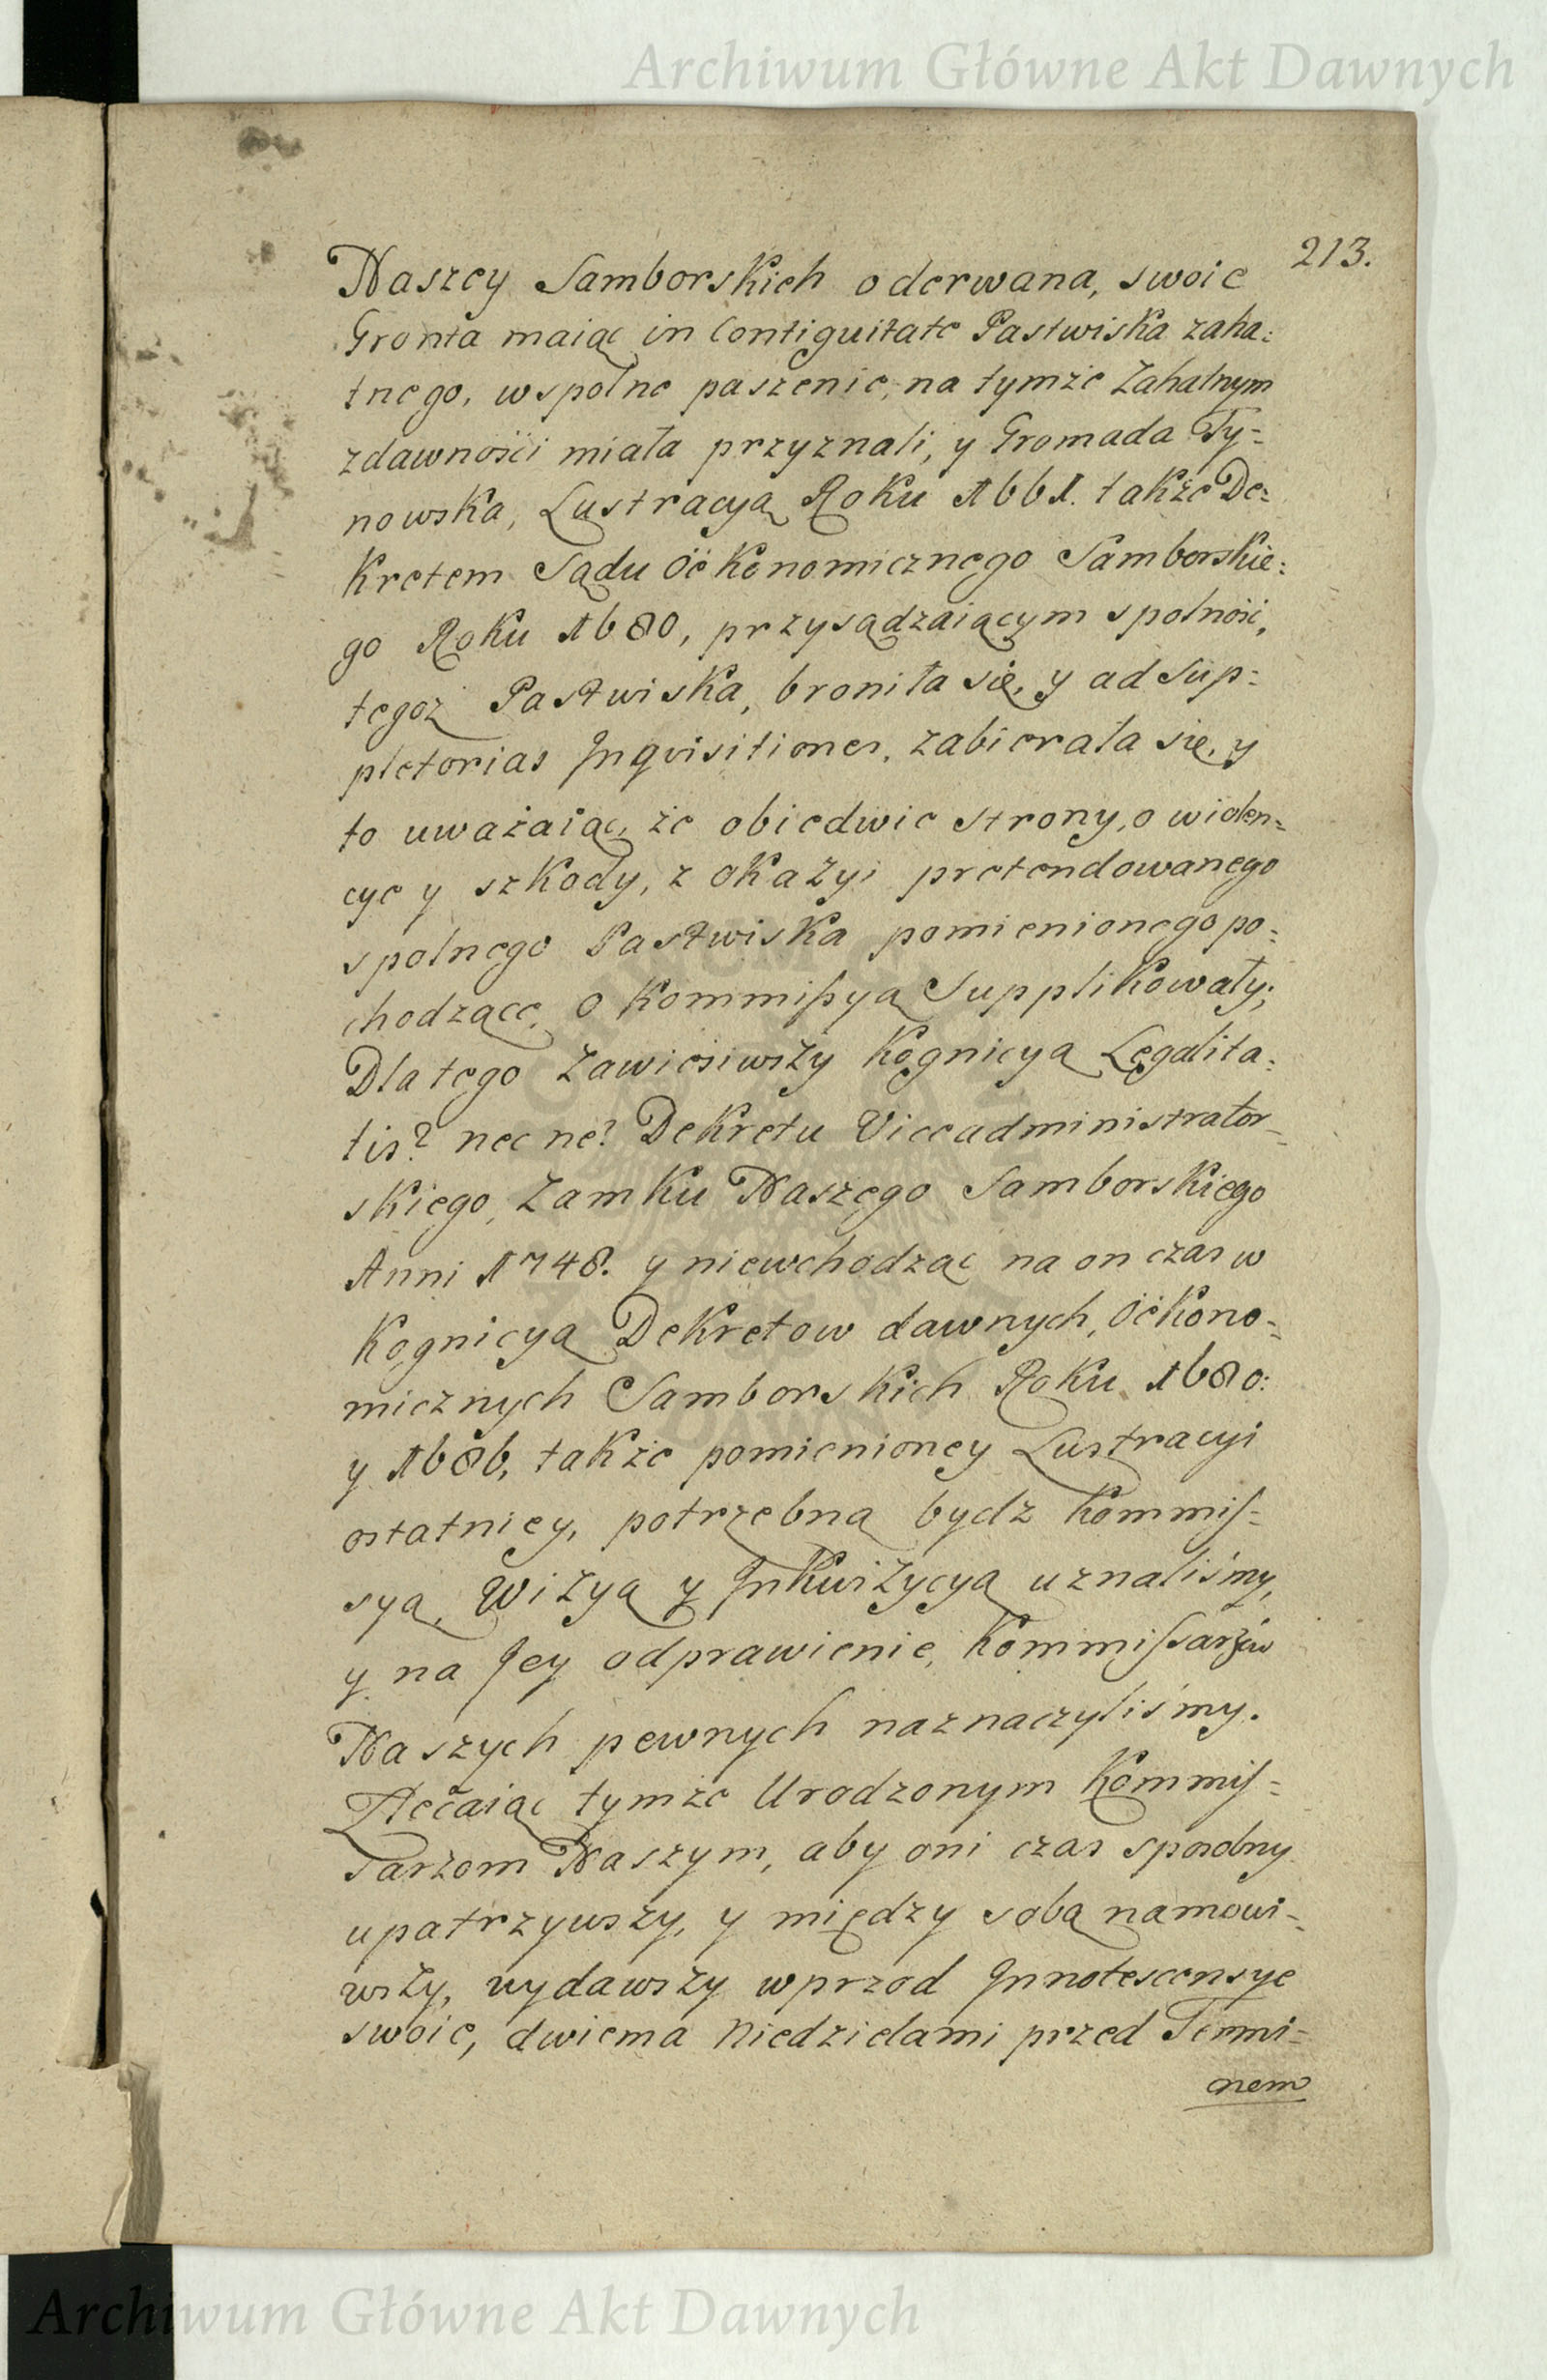 Archiwum Główne Akt Dawnych
213.
Naszey Samborskich oderwana, swoie
Gronta maiąc in Contiguitate Pastwiska zaha=
tnego, wspolne paszenie, na tymże Zahatnym
zdawności miała przyznali, y Gromada Ty=
nowska, Lustracyą Roku 1661. także De=
kretem Sądu Oëkonomicznego Samborskie=
go Roku 1680, przysądzaiącym spolność,
tegoz Pastwiska, broniła się, y ad Sup=
pletorias Inqvisitiones, zabierała się, y
to uważaiąc, że obiedwie strony, o wiolen=
cye y szkody, z okazyi pretendowanego
spolnego Pastwiska pomienionego po=
chodzące, o Kommißyą Supplikowały;
Dla tego Zawiesiwszy Kognicyą Legalita=
tis? nec ne? Dekretu Viceadministrator=
skiego, Zamku Naszego Samborskiego
Anni 1748. y niewchodząc na on czas w
Kognicyą Dekretow dawnych, Oëkono=
micznych Samborskich Roku 1680:
y 1686, także pomienioney Lustracyi
ostatniey, potrzebną bydz Kommis=
syą, Wizyą y Inkwizycyą uznaliśmy,
y na Jey odprawienie, Kommissarzów
Naszych pewnych naznaczyliśmy.
Zlecaiąc tymże Urodzonym Kommis=
sarzom Naszym, aby oni czas sposobny
upatrzywszy, y między sobą namowi=
wszy, wydawszy wprzod Innotescensye
swoie, dwiema Niedzielami przed Termi=
nem
Archiwum Główne Akt Dawnych